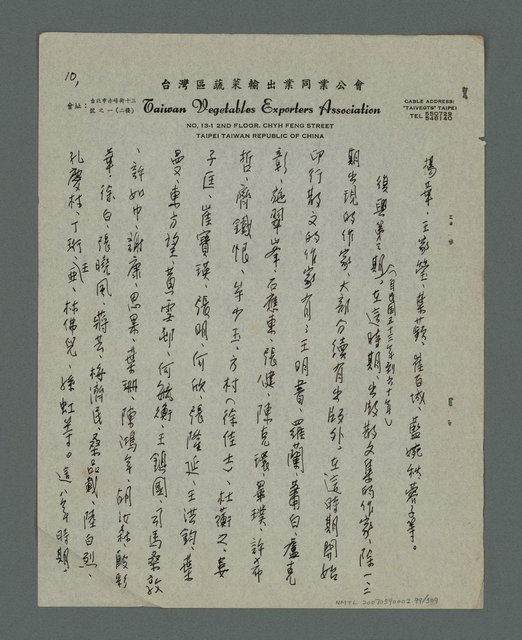 10,
台灣區蔬菜輸出業同業公會
會址：台北市赤峰街十三號之一(二樓)
Taiwan Vegetables Exporters Association
NO, 13-1 2ND FLOOR. CHYH FENG STREET
TAIPEI TAIWAN REPUBLIC OF CHINA
CABLE ADDRESS:
"TAIVEGTS" TAIPEI
TEL 550729
548140
楊華、王家瑩、朱蘋、崔百城、藍婉秋蓉子等。
復興第三期，(自民國五十三年到六十年)在這時期出版散文集的作家，除一、二
期出現的作家、大部分續有出版外，在這時期開始
印行散文的作家有：王明書、羅蘭、蕭白、盧克
彰、施翠峯、石蕉東、張健、陳克環、畢璞、許希
哲、齊鐵恨、牟少玉、方村（徐佳士）、杜蘅之、姜
子匡、崔寶瑛、張明、何欣、張隆延、王洪鈞、葉
曼、東方望、黃雲邨、何毓衡、王鎮國、司馬桑敦
、許如中、謝康、思果、葉珊、陳鴻年、胡汝森、殷彰
華、徐白、張曉風、蔣芸、梅濟民、桑品載、陸白烈、
孔慶棣、丁琦、王、林佛兒、孫虹等。這八年時期
NMTL 20070590002.99/309